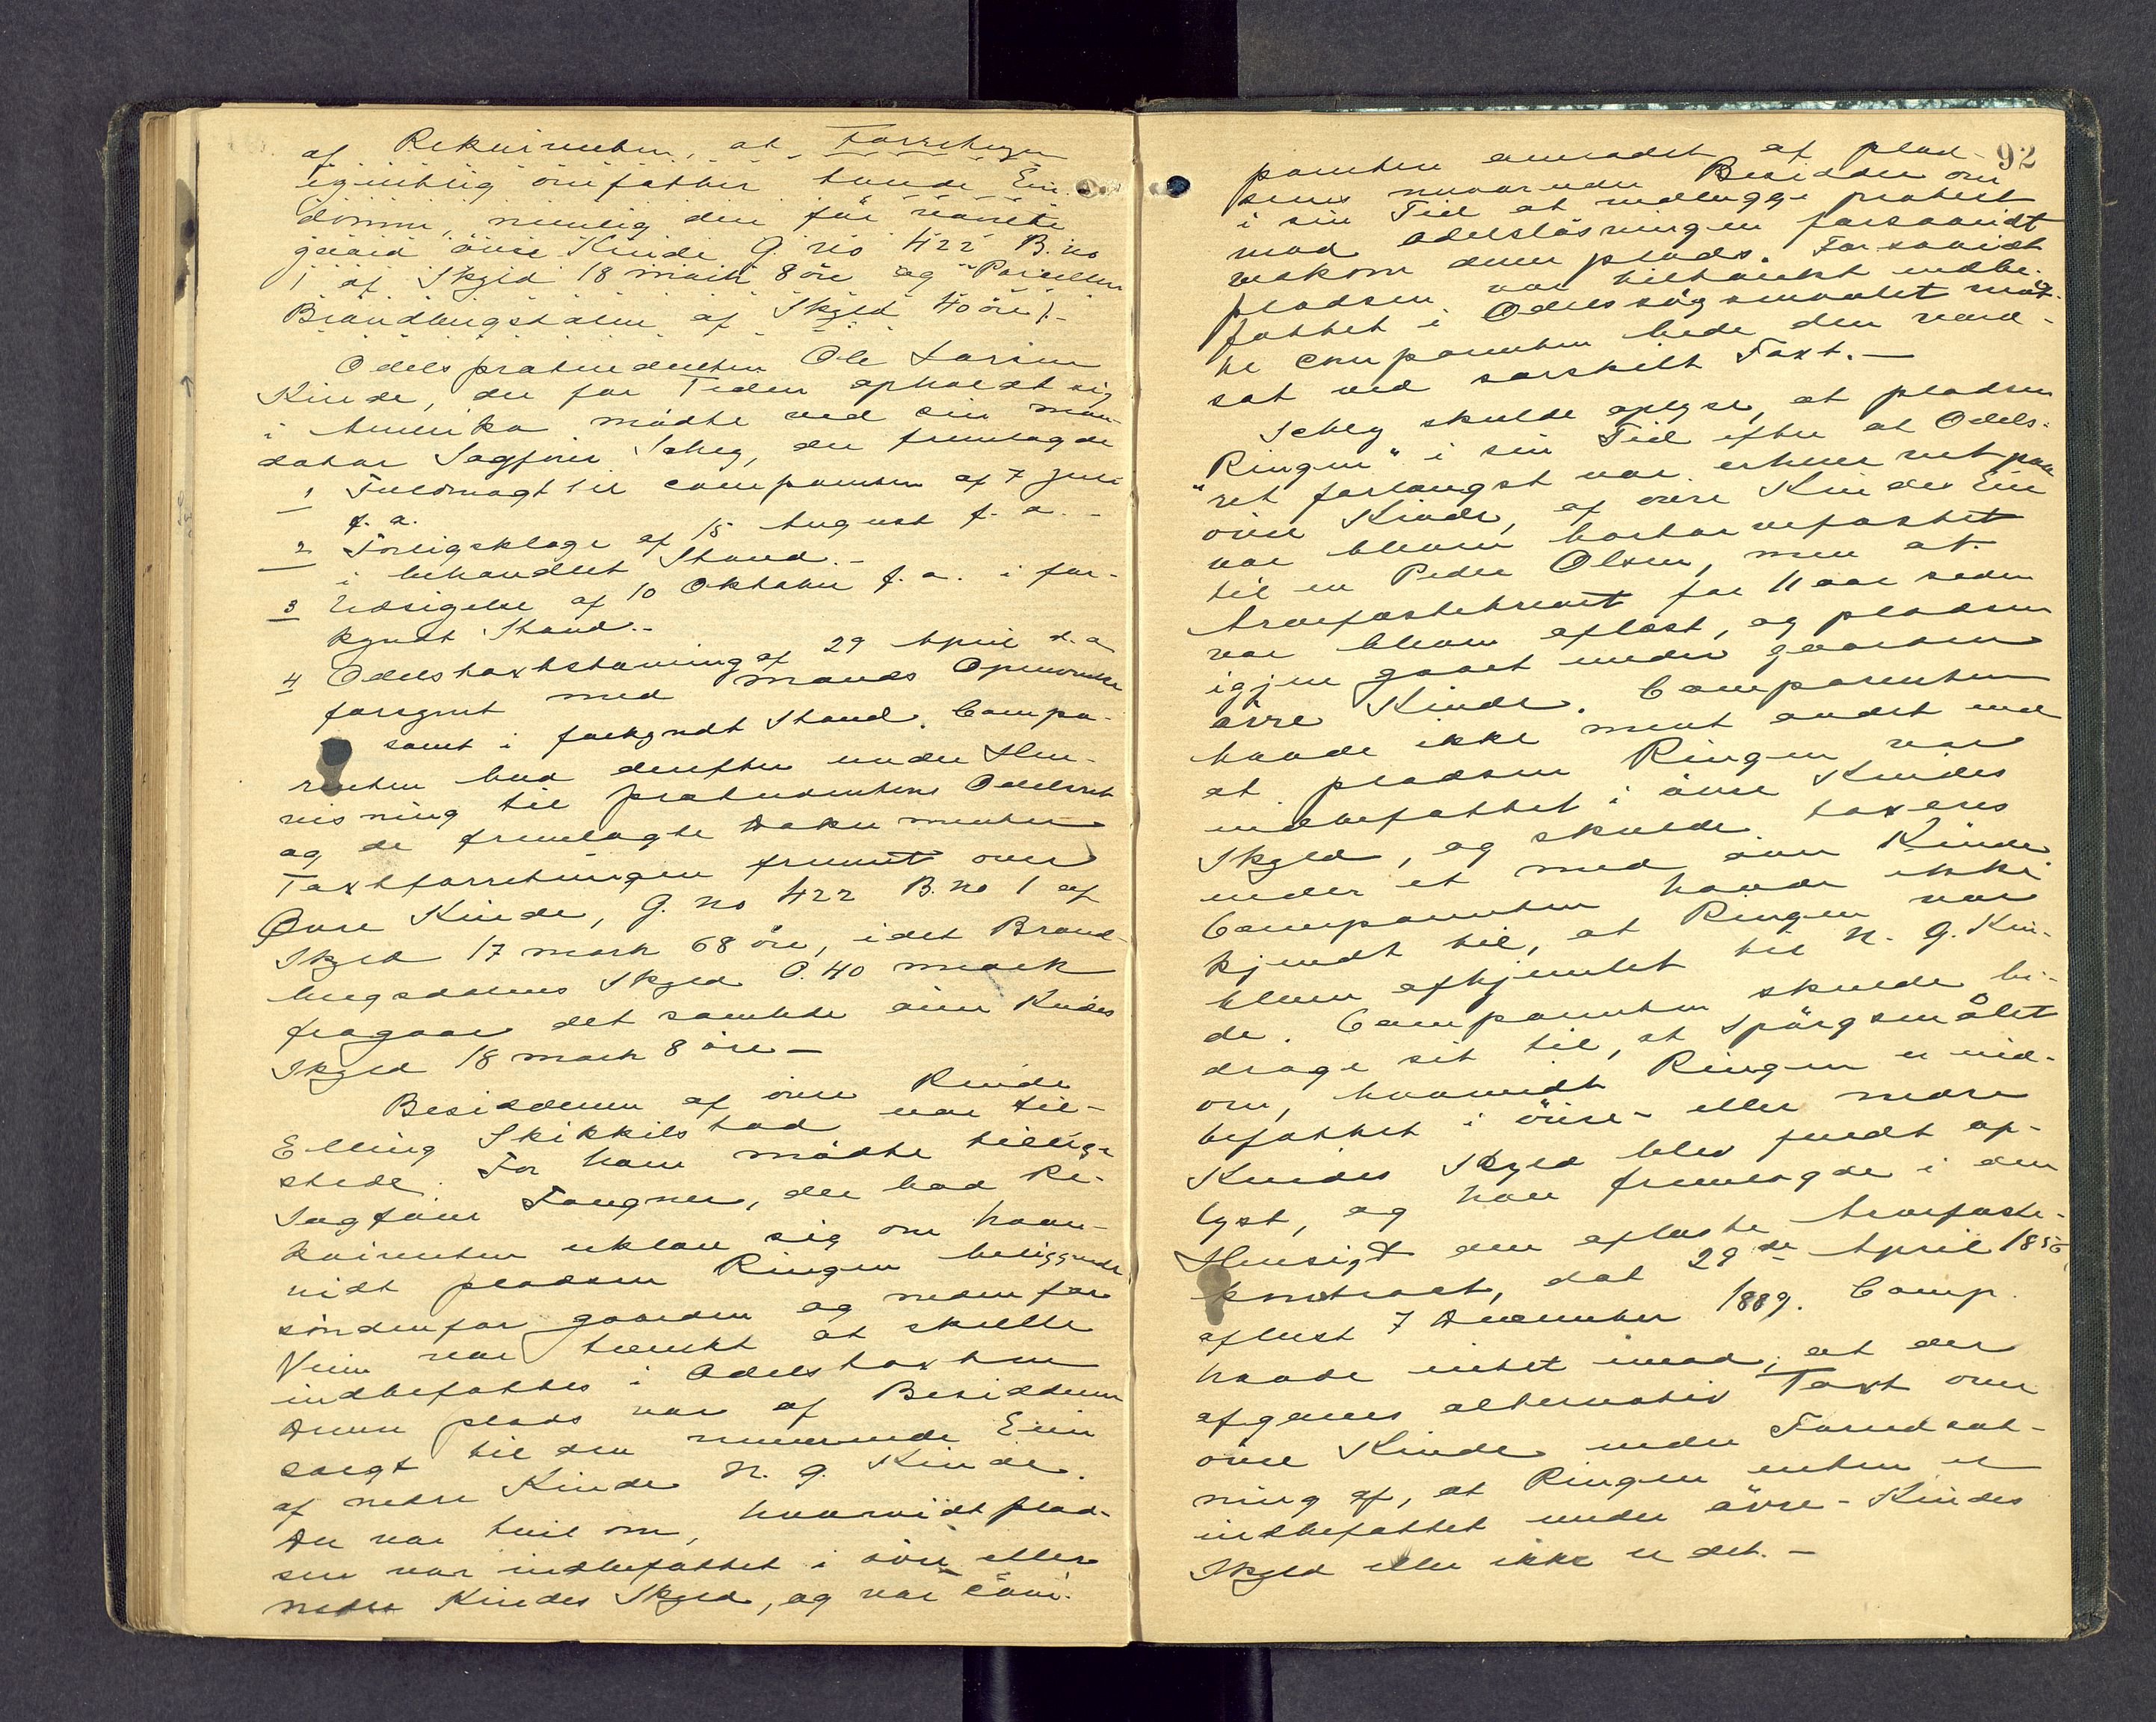 af Rekvirenten, at Forretningen
egentlig omfatter tvende Ein-
domme, nemlig den før nævnte
gaard övre Kinde G. no 422 B. no
1 af Skyld 18 mark 8 öre og "Parcellen
Brandlingsdalen af Skyld 40 öre).-
Odelsprætendenten Ole Larsen
Kinde, der for Tiden opholdt sig
i Amerika mödte ved sin man-
datar Sagförer Schey, der fremlagde
1 Fuldmagt til comparenten af 7 Juli
f. a.
2 Forligsklage af 15 August f. a. -
i behandlet Stand.-
3 Udsigelse af 10 Oktober f. a. i for-
kyndt Stand.-
4 Odelstaxtstævning af 29 April d. a
forsynet med mands Opnævnelse
samt i forkyndt Stand. Compa-
renten bad derefter under Hen-
visning til prætendentens Odelsret
og de fremlagte Dokumenter
Taxtforretningen fremmet over
Övre Kinde, G. no 422 B. no 1 af
Skyld 17 mark 68 öre, idet Brand-
lingsdalens Skyld 0.40 mark
fragaar det samlede övre Kindes
Skyld 18 mark 8 öre -
Besidderen af övre Kinde
Elling Skikkilstad var til-
stede. For ham mödte tillige
Sagförer Fougner, der bad Re-
kvirenten erklære sig om hvor-
vidt pladsen Ringen beliggende
söndenfor gaarden og nedenfor
Veien var tænkt at skulle
indbefattes i Odelstaxten
Denne plads var af Besidderen
solgt til den nuværende Eier
af nedre Kinde N. G. Kinde.
Der var tvil om, hvorvidt plad-
sen var indbefattet i övre eller
nedre Kindes Skyld, og var Com-
92
parenten anmodet af plad-
sens nuværende Besidder om
i sin Tid at nedlægge protest
mod Odelslösningen forsaavidt
vedkom denne plads. Forsaavidt
pladsen var tiltænkt indbe-
fattet i Odelssögsmaalet maat-
te Comparenten bede den vær-
sat ved særskilt Taxt.-
Schey skulde oplyse, at pladsen
"Ringen" i sin Tid efter at Odels-
ret forlængst var erhvervet paa
övre Kinde, af övre Kindes Eier
var bleven bortarvefæstet
til en Peder Olsen, men at
Arvefæstebrevet for 11 aar siden
var bleven aflöst, og pladsen
igjen gaaet under gaarden
övre Kinde. Comparenten
havde ikke ment andet end
at pladsen Ringen var
indbefattet i övre Kindes
Skyld, og skulde taxeres
under et med övre Kinde.
Comparenten havde ikke
kjendt til, at Ringen var
bleven afhjemlet til N. G. Kin-
de. Comparenten skulde bi-
drage sit til, at Spörgsmålet
om, hvorvidt Ringen er ind-
befattet i övre- eller nedre
Kindes Skyld blev fuldt op-
lyst, og han fremlagde i den
Hensigt den aflöste Arvefæste-
kontract, dat 29de April 1856
aflæst 7 December 1889. Comp.
havde intet imod, at der
afgaves alternativ Taxt over
övre Kinde under Forudsæt-
ning af, at Ringen enten er
indbefattet under övre-Kindes
Skyld eller ikke er det.-